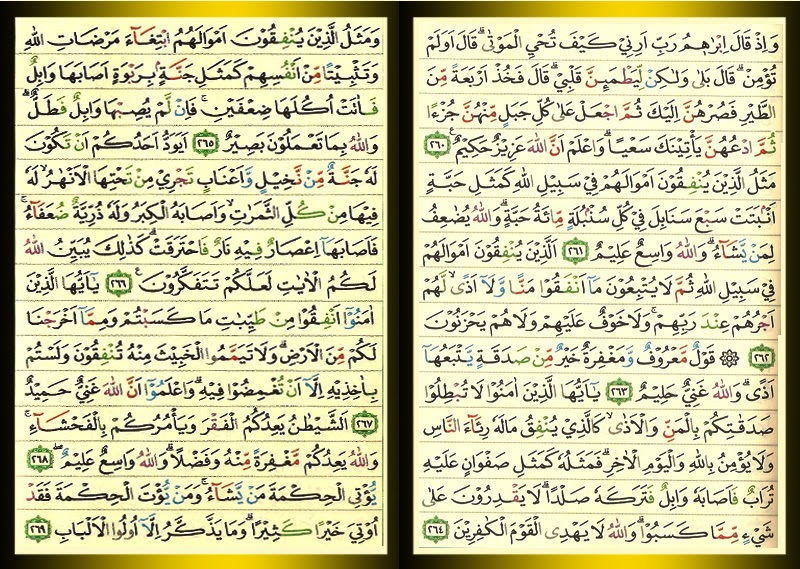 وَاِذْ قَالَ اِبْرٰهٖمُ رَبِّ اَرِنِيْ كَيْفَ تُحْيِ الْمَوْتٰى ۗ قَالَ اَوَلَمْ
تُؤْمِنْ ۗ قَالَ بَلٰى وَلٰكِنْ لِّيَطْمَىِٕنَّ قَلْبِيْ ۗ قَالَ فَخُذْ اَرْبَعَةً مِّنَ
الطَّيْرِ فَصُرْهُنَّ اِلَيْكَ ثُمَّ اجْعَلْ عَلٰى كُلِّ جَبَلٍ مِّنْهُنَّ جُزْءًا
ثُمَّ ادْعُهُنَّ يَأْتِيْنَكَ سَعْيًا ۗ وَاعْلَمْ اَنَّ اللّٰهَ عَزِيْزٌ حَكِيْمٌ ࣖ ٢٦٠
مَثَلُ الَّذِيْنَ يُنْفِقُوْنَ اَمْوَالَهُمْ فِيْ سَبِيْلِ اللّٰهِ كَمَثَلِ حَبَّةٍ
اَنْۢبَتَتْ سَبْعَ سَنَابِلَ فِيْ كُلِّ سُنْۢبُلَةٍ مِّائَةُ حَبَّةٍ ۗ وَاللّٰهُ يُضٰعِفُ
لِمَنْ يَّشَاۤءُ ۗ وَاللّٰهُ وَاسِعٌ عَلِيْمٌ ٢٦١ اَلَّذِيْنَ يُنْفِقُوْنَ اَمْوَالَهُمْ
فِيْ سَبِيْلِ اللّٰهِ ثُمَّ لَا يُتْبِعُوْنَ مَآ اَنْفَقُوْا مَنًّا وَّلَآ اَذًىۙ لَّهُمْ
اَجْرُهُمْ عِنْدَ رَبِّهِمْۚ وَلَا خَوْفٌ عَلَيْهِمْ وَلَا هُمْ يَحْزَنُوْنَ
٢٦٢ ۞ قَوْلٌ مَّعْرُوْفٌ وَّمَغْفِرَةٌ خَيْرٌ مِّنْ صَدَقَةٍ يَّتْبَعُهَآ
اَذًى ۗ وَاللّٰهُ غَنِيٌّ حَلِيْمٌ ٢٦٣ يٰٓاَيُّهَا الَّذِيْنَ اٰمَنُوْا لَا تُبْطِلُوْا
صَدَقٰتِكُمْ بِالْمَنِّ وَالْاَذٰىۙ كَالَّذِيْ يُنْفِقُ مَالَهٗ رِئَاۤءَ النَّاسِ
وَلَا يُؤْمِنُ بِاللّٰهِ وَالْيَوْمِ الْاٰخِرِ ۗ فَمَثَلُهٗ كَمَثَلِ صَفْوَانٍ عَلَيْهِ
تُرَابٌ فَاَصَابَهٗ وَابِلٌ فَتَرَكَهٗ صَلْدًا ۗ لَا يَقْدِرُوْنَ عَلٰى
شَيْءٍ مِّمَّا كَسَبُوْا ۗ وَاللّٰهُ لَا يَهْدِى الْقَوْمَ الْكٰفِرِيْنَ ٢٦٤
وَمَثَلُ الَّذِيْنَ يُنْفِقُوْنَ اَمْوَالَهُمُ ابْتِغَاۤءَ مَرْضَاتِ اللّٰهِ
وَتَثْبِيْتًا مِّنْ اَنْفُسِهِمْ كَمَثَلِ جَنَّةٍۢ بِرَبْوَةٍ اَصَابَهَا وَابِلٌ
فَاٰتَتْ اُكُلَهَا ضِعْفَيْنِۚ فَاِنْ لَّمْ يُصِبْهَا وَابِلٌ فَطَلٌّ ۗ
وَاللّٰهُ بِمَا تَعْمَلُوْنَ بَصِيْرٌ ٢٦٥ اَيَوَدُّ اَحَدُكُمْ اَنْ تَكُوْنَ
لَهٗ جَنَّةٌ مِّنْ نَّخِيْلٍ وَّاَعْنَابٍ تَجْرِيْ مِنْ تَحْتِهَا الْاَنْهٰرُۙ لَهٗ
فِيْهَا مِنْ كُلِّ الثَّمَرٰتِۙ وَاَصَابَهُ الْكِبَرُ وَلَهٗ ذُرِّيَّةٌ ضُعَفَاۤءُۚ
فَاَصَابَهَآ اِعْصَارٌ فِيْهِ نَارٌ فَاحْتَرَقَتْ ۗ كَذٰلِكَ يُبَيِّنُ اللّٰهُ
لَكُمُ الْاٰيٰتِ لَعَلَّكُمْ تَتَفَكَّرُوْنَ ࣖ ٢٦٦ يٰٓاَيُّهَا الَّذِيْنَ
اٰمَنُوْٓا اَنْفِقُوْا مِنْ طَيِّبٰتِ مَا كَسَبْتُمْ وَمِمَّآ اَخْرَجْنَا
لَكُمْ مِّنَ الْاَرْضِ ۗ وَلَا تَيَمَّمُوا الْخَبِيْثَ مِنْهُ تُنْفِقُوْنَ وَلَسْتُمْ
بِاٰخِذِيْهِ اِلَّآ اَنْ تُغْمِضُوْا فِيْهِ ۗ وَاعْلَمُوْٓا اَنَّ اللّٰهَ غَنِيٌّ حَمِيْدٌ
٢٦٧ اَلشَّيْطٰنُ يَعِدُكُمُ الْفَقْرَ وَيَأْمُرُكُمْ بِالْفَحْشَاۤءِۚ
وَاللّٰهُ يَعِدُكُمْ مَّغْفِرَةً مِّنْهُ وَفَضْلًا ۗ وَاللّٰهُ وَاسِعٌ عَلِيْمٌ ۖ ٢٦٨
يُّؤْتِى الْحِكْمَةَ مَنْ يَّشَاۤءُۚ وَمَنْ يُّؤْتَ الْحِكْمَةَ فَقَدْ
اُوْتِيَ خَيْرًا كَثِيْرًا ۗ وَمَا يَذَّكَّرُ اِلَّآ اُولُوا الْاَلْبَابِ ٢٦٩